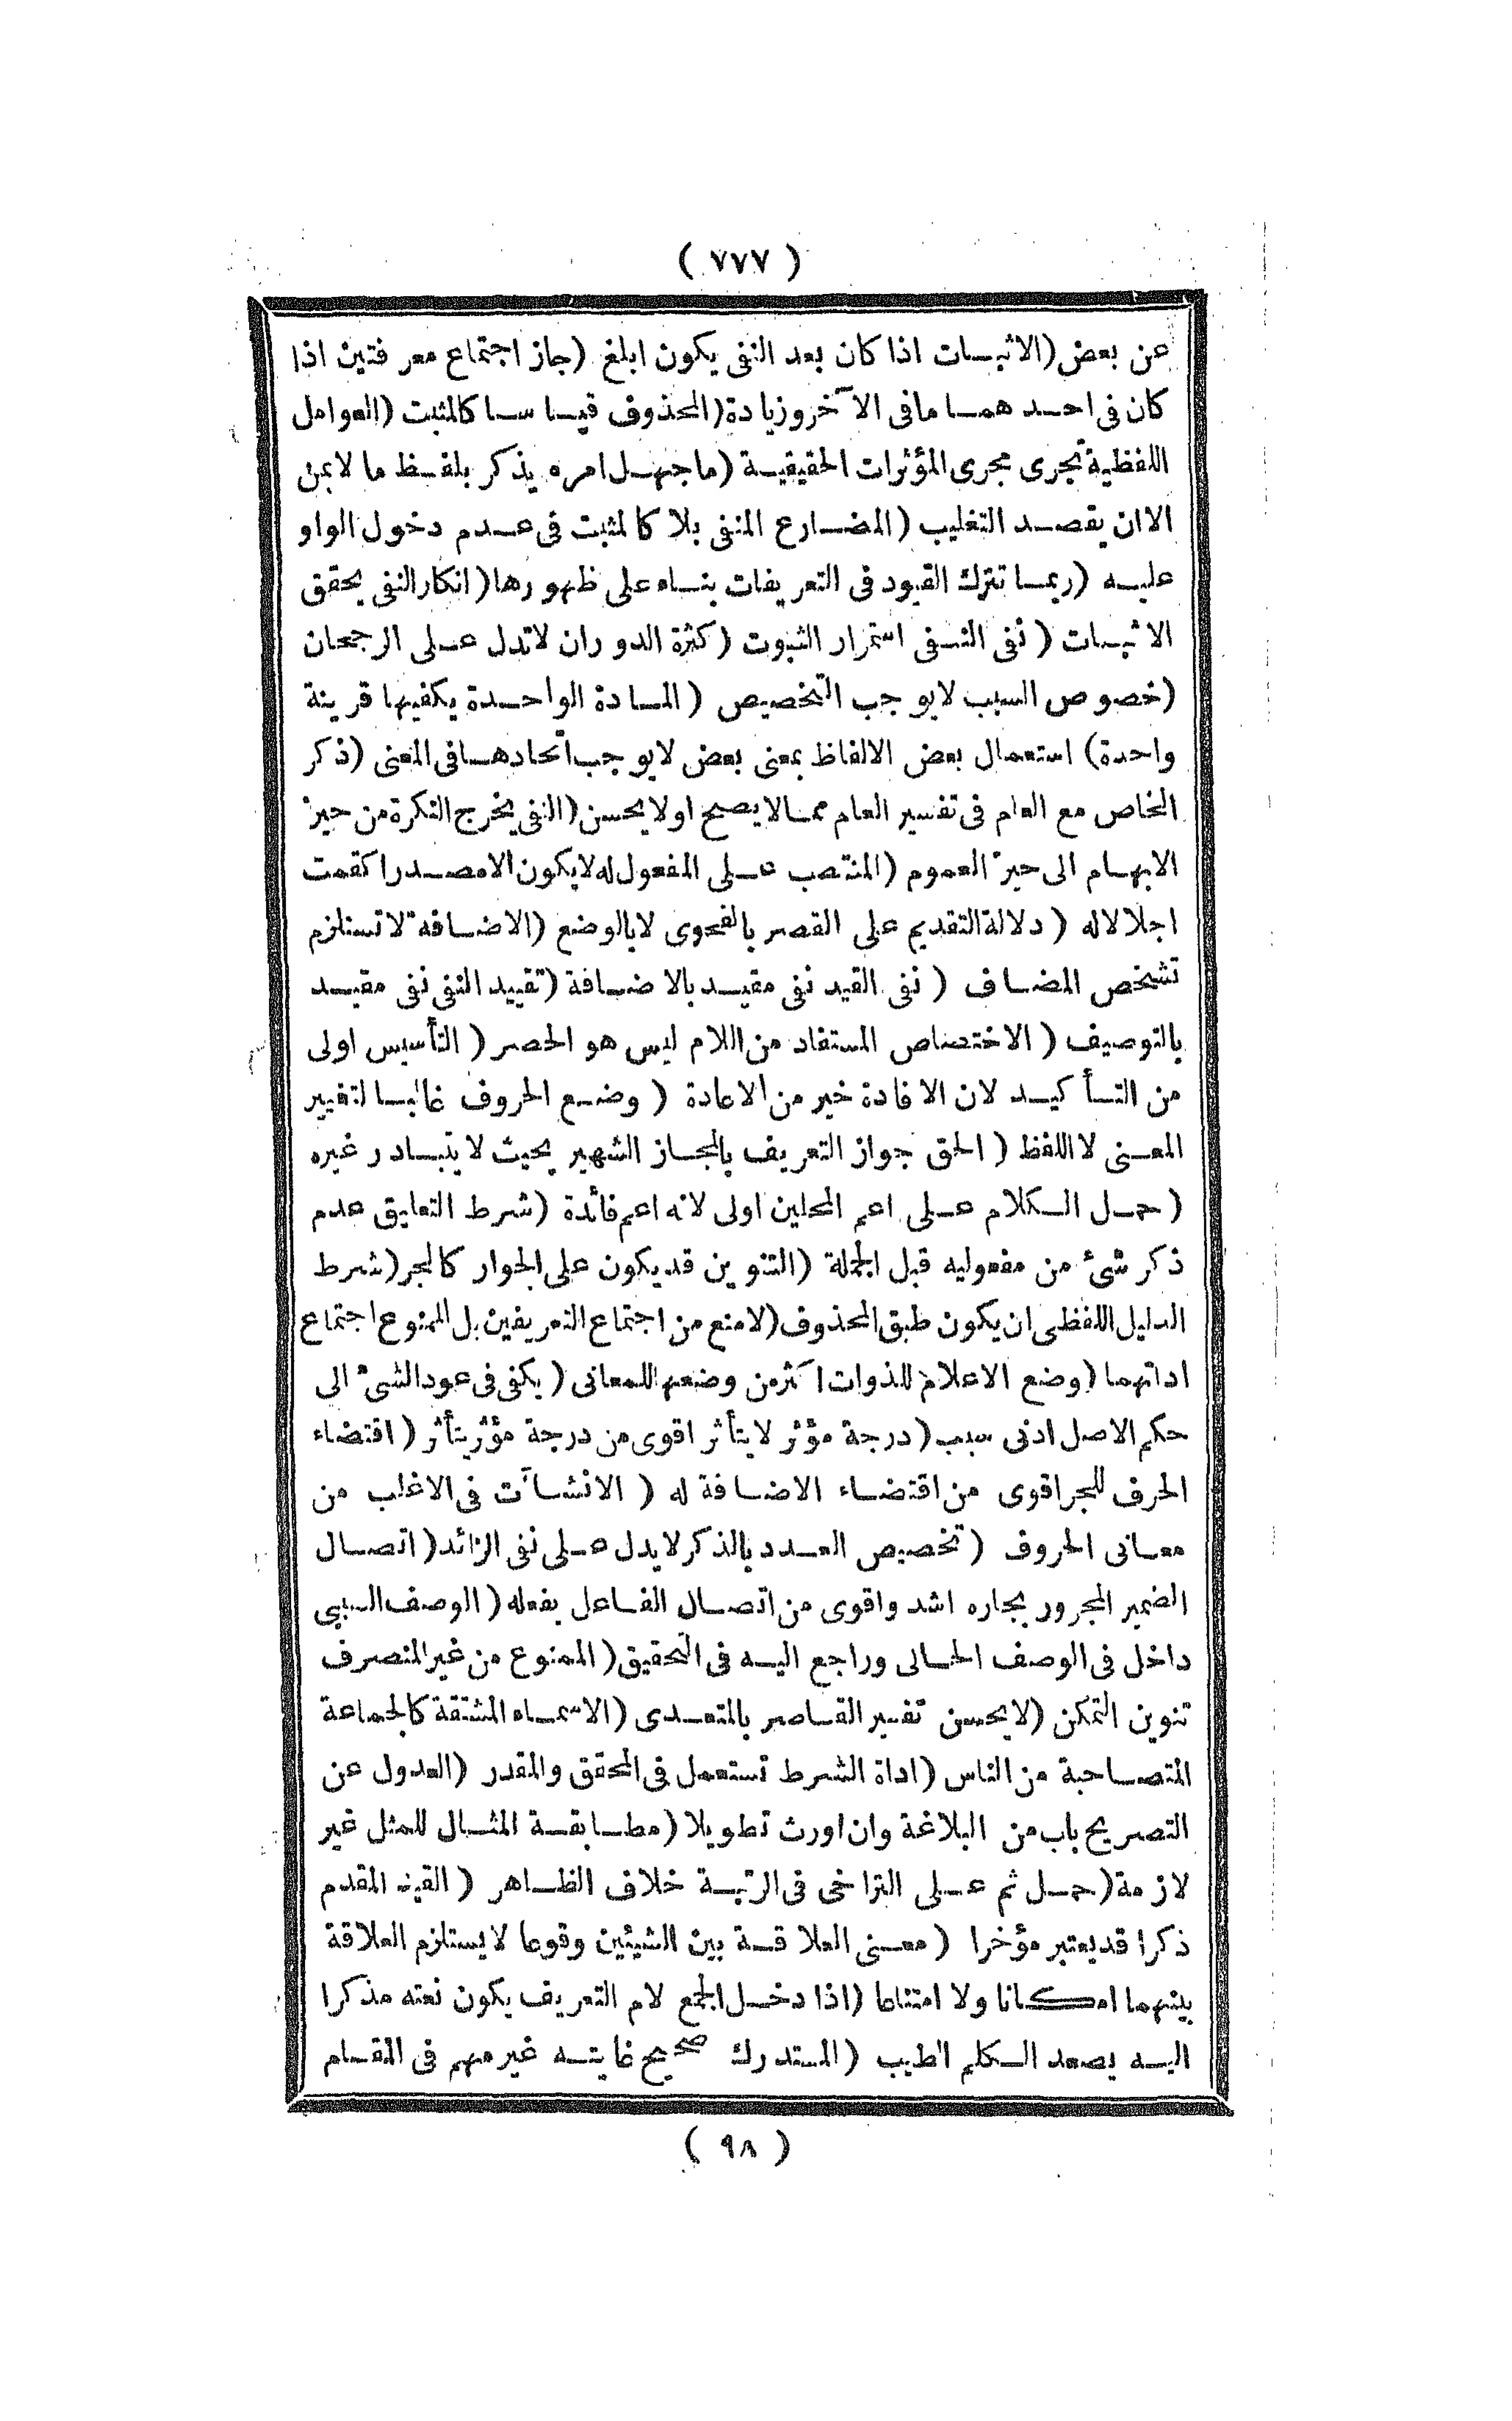 ( ٧٧٧ )
عن بعض (الاثبات اذا كان بعد النفى يكون ابلغ (جاز اجتماع معرفتين اذا
كان فى احدهما مافى الآخر وزيادة (المحذوف قياسا كالمثبت (العوامل
اللفظية تجرى مجرى المؤثرات الحقيقية (ما جهل امره يذكر بلفظ ما لا بمن
الا ان يقصد التغليب (المضارع المنفى بلا كالمثبت فى عدم دخول الواو
عليه (ربما تترك القيود فى التعريفات بناء على ظهورها (انكار النفى يحقق
الاثبات (نفى النفى استمرار الثبوت (كثرة الدوران لا تدل على الرجحان
(خصوص السبب لا يوجب التخصيص (المادة الواحدة يكفيها قرينة
واحدة) استعمال بعض الالفاظ بمعنى بعض لا يوجب اتحادها فى المعنى (ذكر
الخاص مع العام فى تفسير العام مما لا يصح او لا يحسن (النفى يخرج النكرة من حيز
الابهام الى حيز العموم (المنتصب على المفعول له لا يكون الا مصدرا كقمت
اجلالا له (دلالة التقديم على القصر بالفحوى لا بالوضع (الاضافة لا تستلزم
تشخص المضاف (نفى القيد نفى مقيد بالاضافة (تقييد النفى نفى مقيد
بالتوصيف (الاختصاص المستفاد من اللام ليس هو الحصر (التأسيس اولى
من التأكيد لان الافادة خير من الاعادة (وضع الحروف غالبا لتغيير
المعنى لا اللفظ (الحق جواز التعريف بالمجاز الشهير بحيث لا يتبادر غيره
(حمل الكلام على اعم المحلين اولى لانه اعم فائدة (شرط التعليق عدم
ذكر شئ من مفعوليه قبل الجملة (التنوين قد يكون على الجوار كالجر (شرط
الدليل اللفظى ان يكون طبق المحذوف (لا منع من اجتماع التعريفين بل الممنوع اجتماع
اداتهما (وضع الاعلام للذوات اكثر من وضعها للمعانى (يكفى فى عود الشئ الى
حكم الاصل ادنى سبب (درجة مؤثر لا يتأثر اقوى من درجة مؤثر يتأثر (اقتضاء
الحرف للجر اقوى من اقتضاء الاضافة له (الانشاآت فى الاغلب من
معانى الحروف (تخصيص العدد بالذكر لا يدل على نفى الزائد (اتصال
الضمير المجرور بجاره اشد واقوى من اتصال الفاعل بفعله (الوصف السببى
داخل فى الوصف الحالى وراجع اليه فى التحقيق (الممنوع من غير المنصرف
تنوين التمكن (لا يحسن تفسير القاصر بالمتعدى (الاسماء المشتقة كالجماعة
المتصاحبة من الناس (اداة الشرط تستعمل فى المحقق والمقدر (العدول عن
التصريح باب من البلاغة وان اورث تطويلا (مطابقة المثال للمثل غير
لازمة (حمل ثم على التراخى فى الرتبة خلاف الظاهر (القيد المقدم
ذكرا قد يعتبر مؤخرا (معنى العلاقة بين الشيئين وقوعا لا يستلزم العلاقة
بينهما امكانا ولا امتناعا (اذا دخل الجمع لام التعريف يكون نعته مذكرا
اليه يصعد الكلم الطيب (المستدرك صحيح غايته غير مهم فى المقام
( ٩٨ )